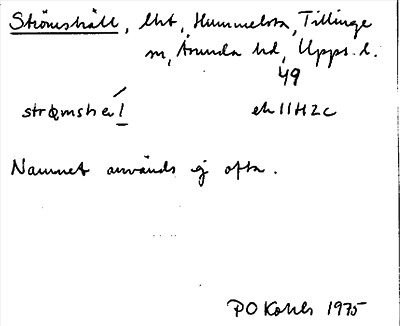 Strömshäll, lht, Hummelsta, Tillinge
sn, Åsunda hd, Upps. l.
49
strømshel ek 11H2c
Namnet används ej ofta.
PO Kohls 1975